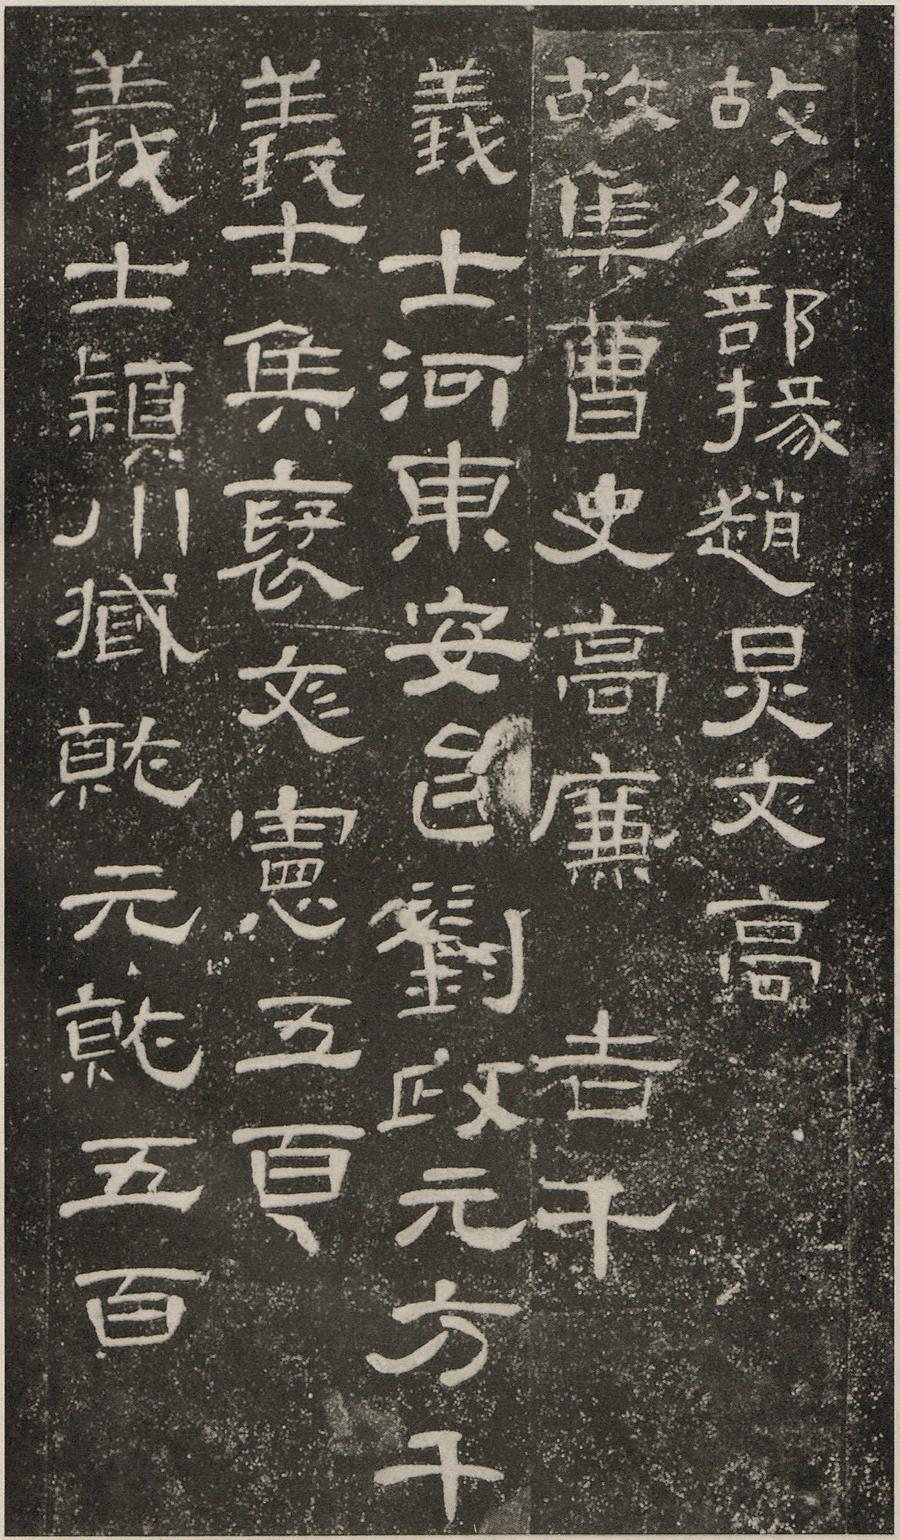 故外部掾趙炅文高
故集曹史高廉 吉千
義士河東安邑劉政元方千
義士侯褒文憲五百
義士潁川臧就元就五百